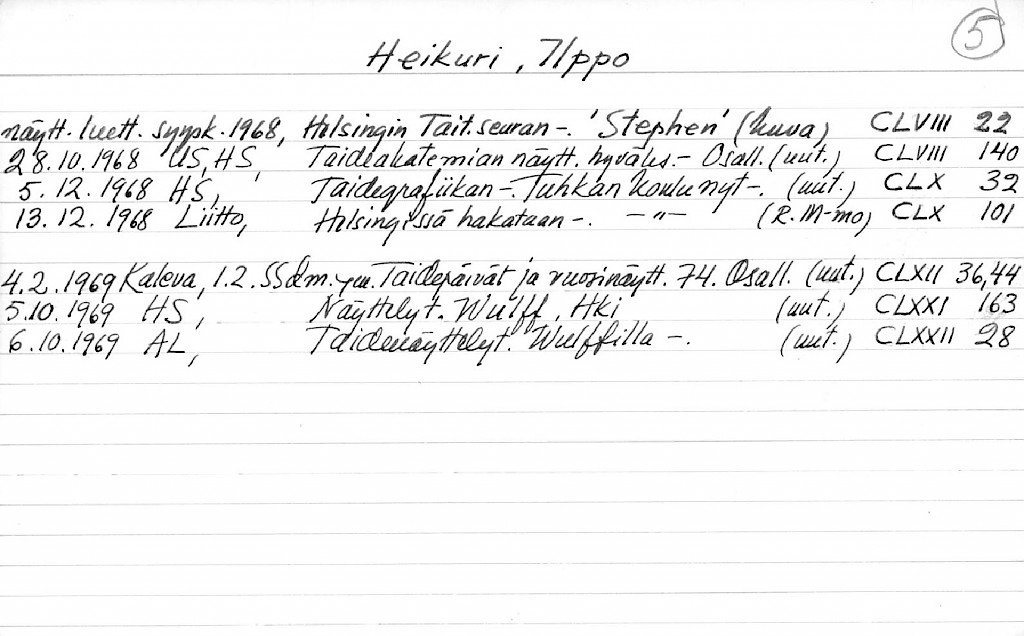 5
Heikuri, Ilppo
näytt. luett. syysk. 1968, Helsingin Tait.seuran -. 'Stephen' (kuva) CLVIII 22
28.10.1968 US, HS, Taideakatemian näytt. hyväks. - Osall. (uut.) CLVIII 140
5.12.1968 HS, Taidegrafiikan -. Tuhkan koulu nyt -. (uut.) CLX 32
13.12.1968 Liitto, Helsingissä hakataan -. -"- (R. M-mo) CLX 101
4.2.1969 Kaleva, 1.2. SSdm. ym. Taidepäivät ja vuosinäytt. 74. Osall. (uut.) CLXII 36,44
5.10.1969 HS, Näyttelyt. Wulff, Hki (uut.) CLXXI 163
6.10.1969 AL, Taidenäyttelyt. Wulffilla -. (uut.) CLXXII 28